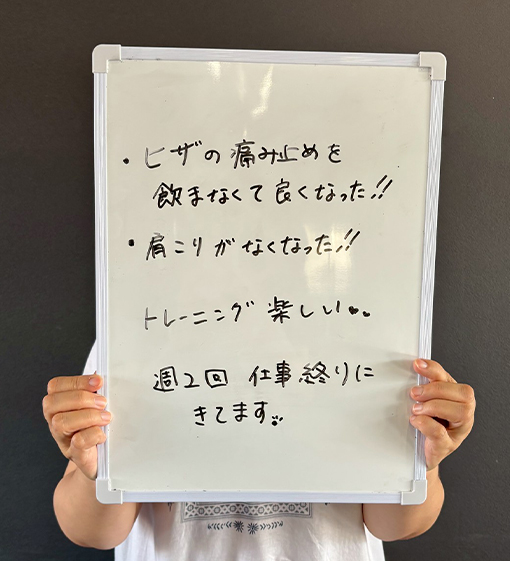 ・ヒザの痛み止めを
飲まなくて良くなった!!
・肩こりがなくなった!!
トレーニング楽しい♥♥
週2回 仕事終りに
きてます